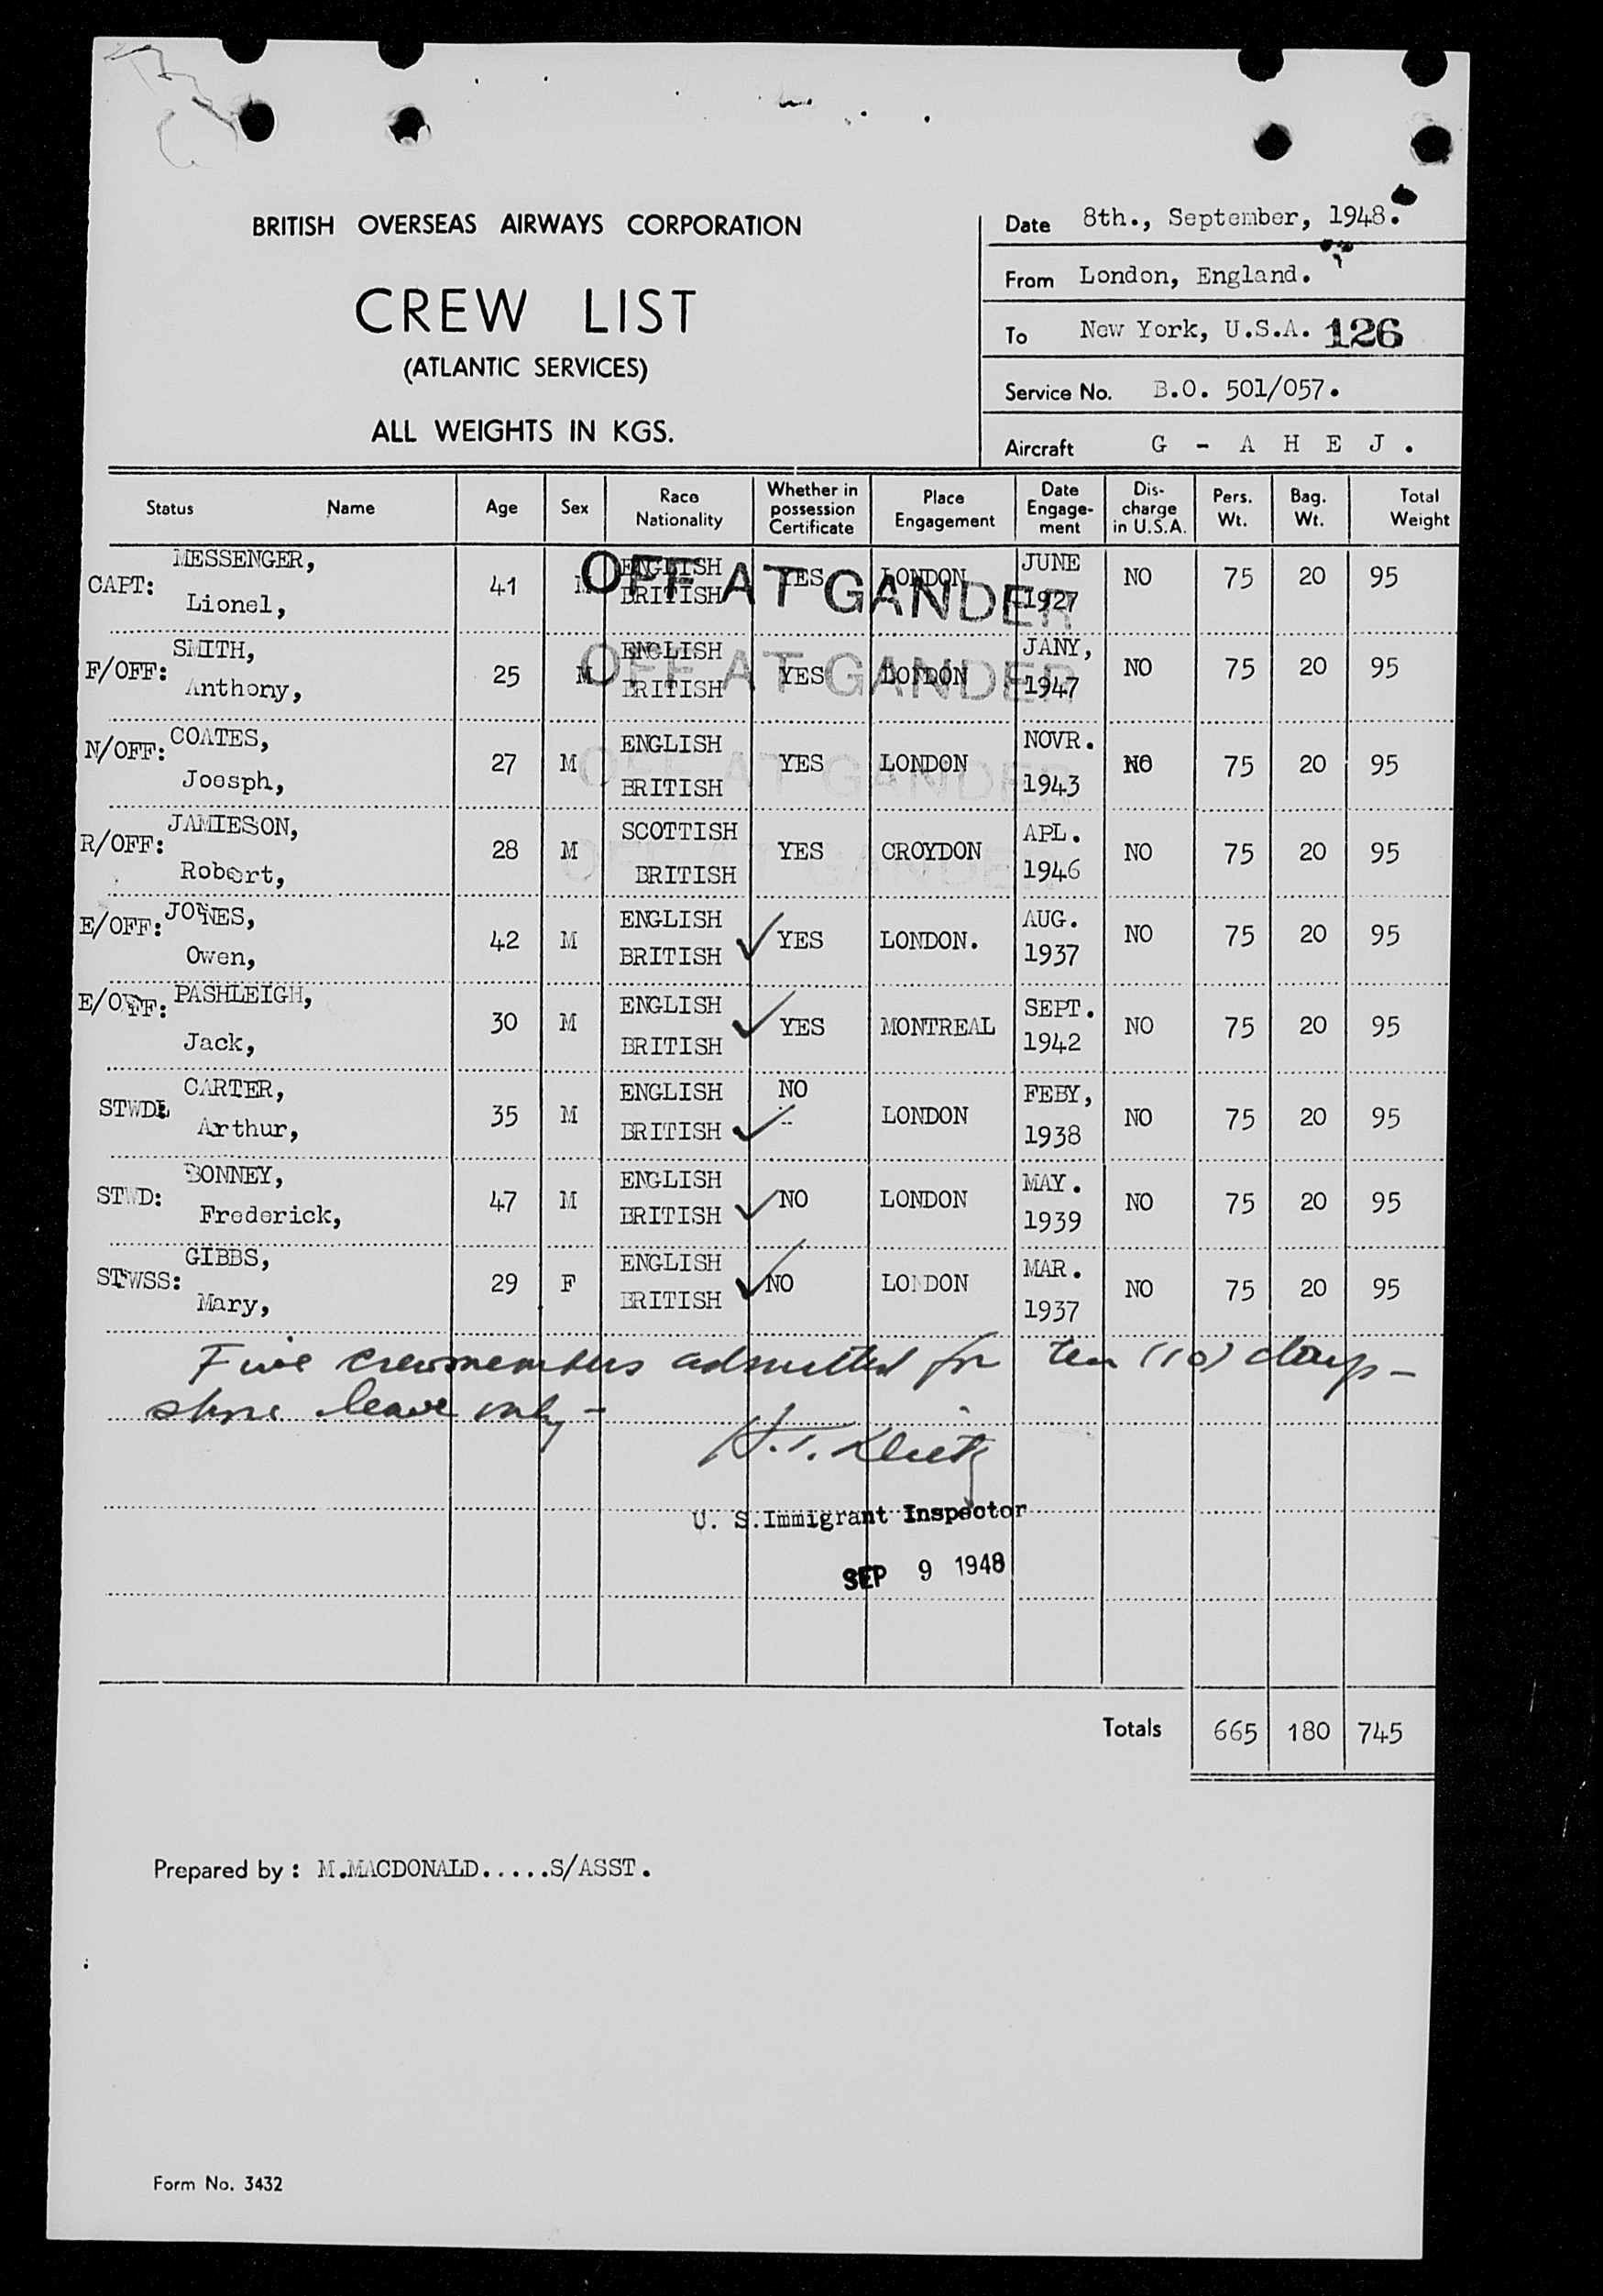 BRITISH OVERSEAS AIRWAYS CORPORATION
CREW LIST
(ATLANTIC SERVICES)
ALL WEIGHTS IN KGS.
Date 8th., September, 1948.
From London, England.
To New York, U.S.A. 126
Service No. B.O. 501/057.
Aircraft G - A H E J .
Status Name Age Sex Race Nationality Whether in possession Certificate Place Engagement Date Engage-ment Dis-charge in U.S.A. Pers. Wt. Bag. Wt. Total Weight
CAPT: MESSENGER, Lionel, 41 M ENGLISH BRITISH YES LONDON JUNE 1927 NO 75 20 95
OFF AT GANDER
F/OFF: SMITH, Anthony, 25 M ENGLISH BRITISH YES LONDON JANY, 1947 NO 75 20 95
OFF AT GANDER
N/OFF: COATES, Joesph, 27 M ENGLISH BRITISH YES LONDON NOVR. 1943 NO 75 20 95
OFF AT GANDER
R/OFF: JAMIESON, Robert, 28 M SCOTTISH BRITISH YES CROYDON APL. 1946 NO 75 20 95
OFF AT GANDER
E/OFF: JONES, Owen, 42 M ENGLISH BRITISH ✓ YES LONDON. AUG. 1937 NO 75 20 95
E/OFF: PASHLEIGH, Jack, 30 M ENGLISH BRITISH ✓ YES MONTREAL SEPT. 1942 NO 75 20 95
STWD: CARTER, Arthur, 35 M ENGLISH BRITISH ✓ NO LONDON FEBY, 1938 NO 75 20 95
STWD: BONNEY, Frederick, 47 M ENGLISH BRITISH ✓ NO LONDON MAY. 1939 NO 75 20 95
STWSS: GIBBS, Mary, 29 F ENGLISH BRITISH ✓ NO LONDON MAR. 1937 NO 75 20 95
Five crewmembers admitted for ten (10) days -
shore leave only -
H.T.
U. S. Immigrant Inspector
SEP 9 1948
Totals 665 180 745
Prepared by : M.MACDONALD.....S/ASST.
Form No. 3432